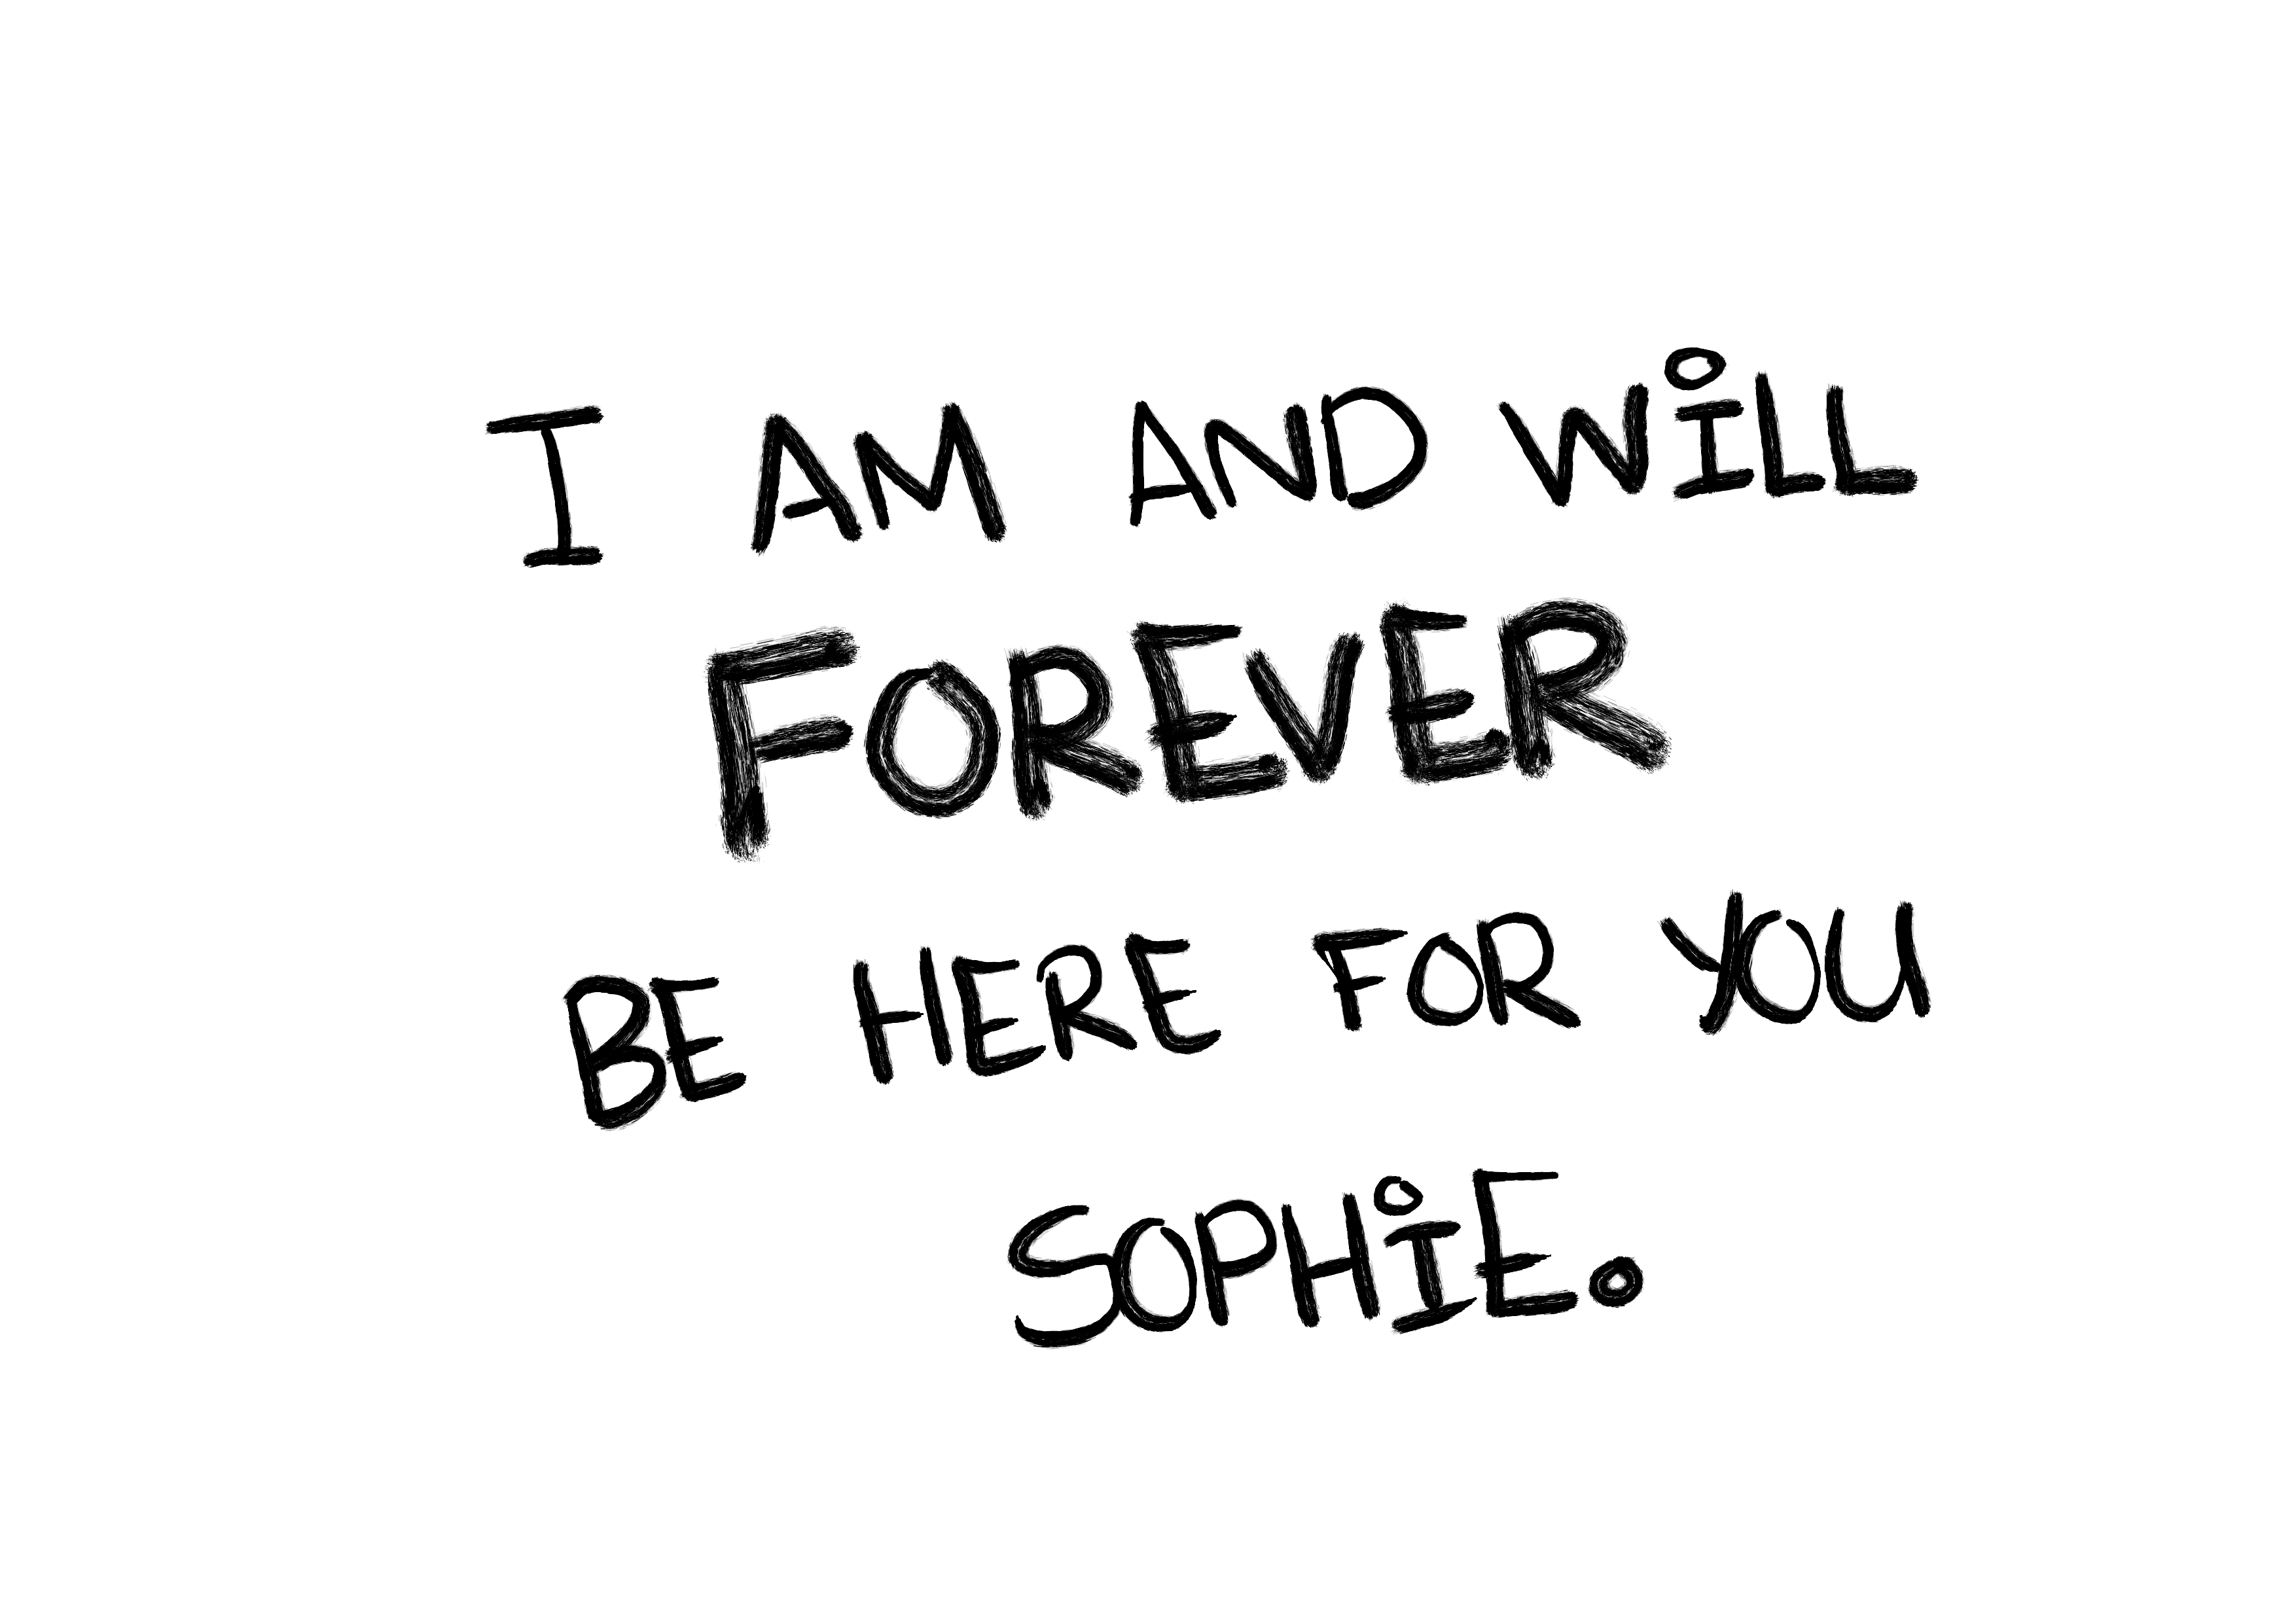 I AM AND WiLL
FOREVER
BE HERE FOR YOU
SOPHiE.